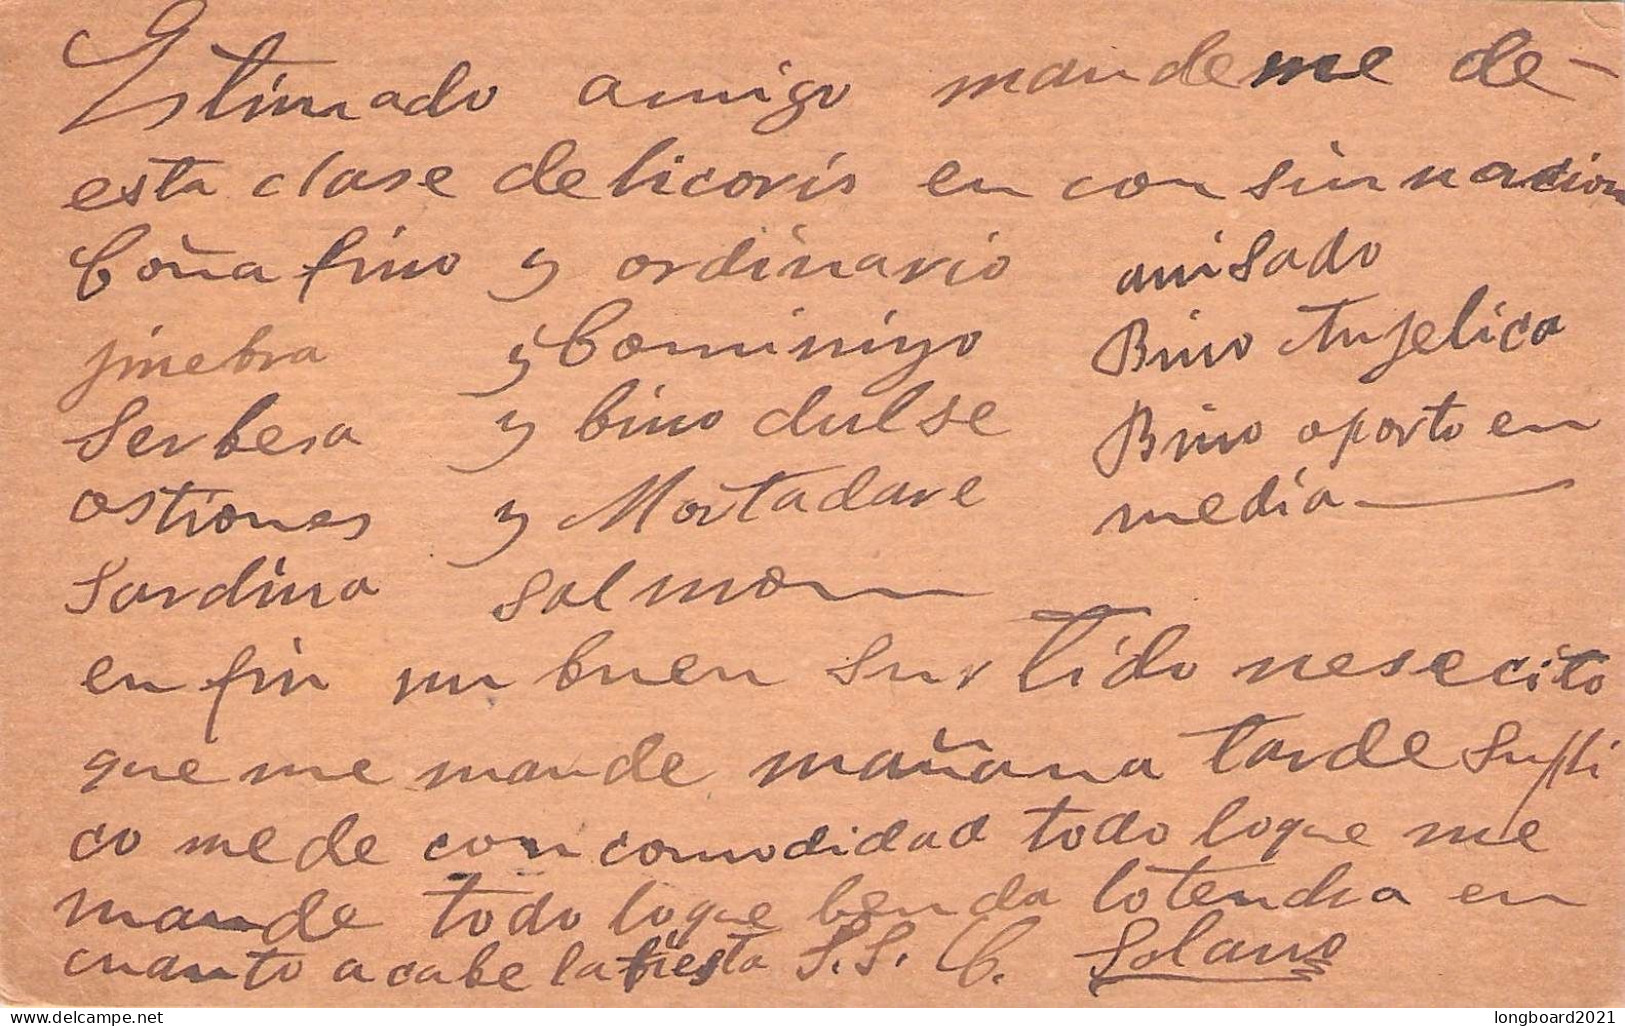 Estimado amigo mandeme de-
esta clase de licoris en consinnacion
Coña fino y ordinario anisado
jinebra y Cominiyo Bino Anjelica
Serbesa y bino dulse Bino oporto en
ostiones y Mortadare media
Sardina salmon
en fin un buen surtido nesecito
que me mande mañana tarde supli
co me de con comodidad todo loque me
mande todo loque benda lo tendra en
cuanto acabe la fiesta S.S. C. Solano
delcampe.net
longboard2021